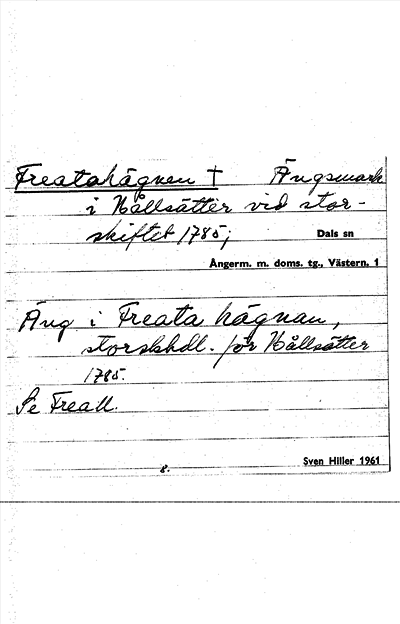 Freatahägnen † Ängsmark
i Hållsätter vid stor-
skiftet 1785;
Dals sn
Ångerm. m. doms. tg., Västern. 1
Äng i Freata hägnan,
storskhdl. för Hållsätter
1785.
Se Freall.
8.
Sven Hiller 1961